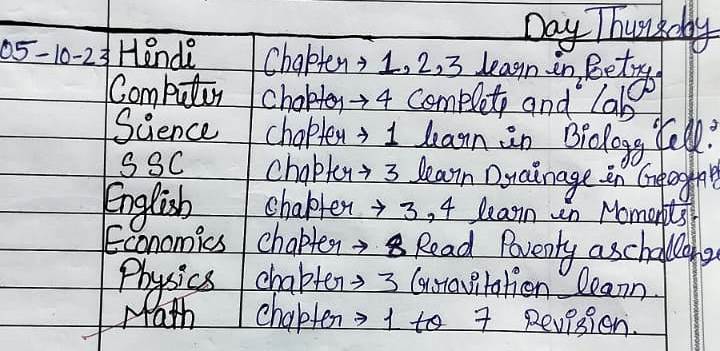 Day Thursday
05-10-23 Hindi Chapter → 1, 2, 3 learn in Poetry.
Computer Chapter → 4 Complete and Lab
Science Chapter → 1 learn in Biology Cell.
SSC Chapter → 3 learn Drainage in Geograp
English Chapter → 3, 4 learn in Moments.
Economics Chapter → 8 Read Poverty as challenge
Physics Chapter → 3 Gravitation learn.
Math Chapter → 1 to 7 Revision.